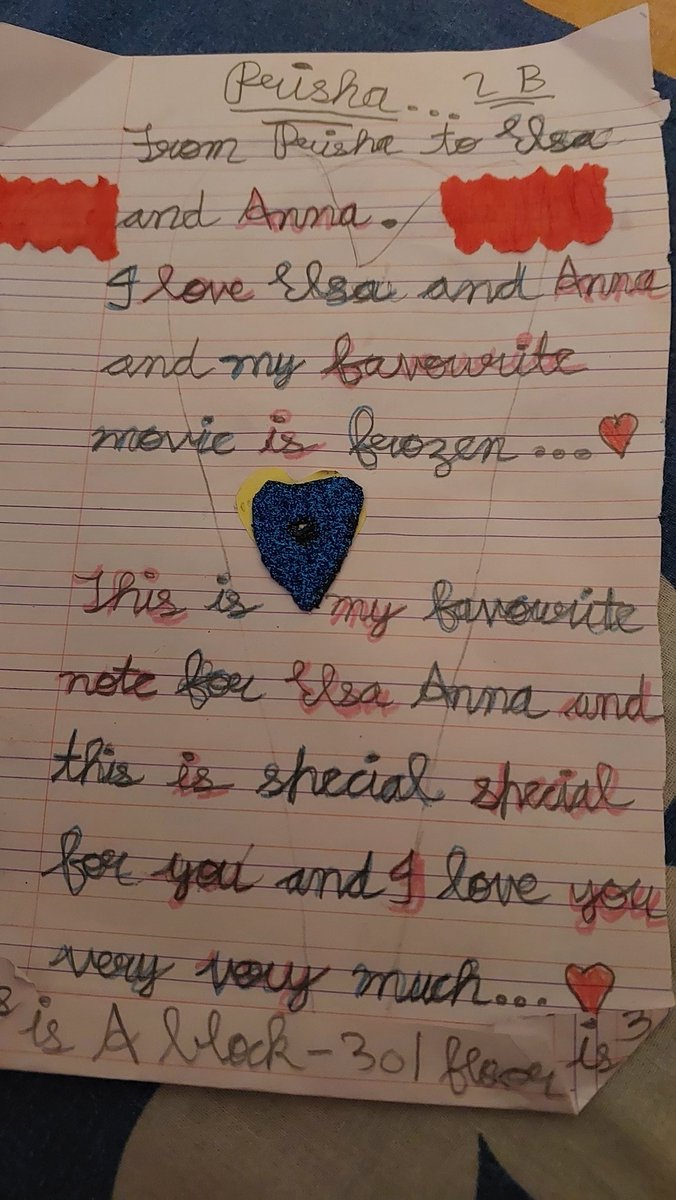 Peisha... 2 B
From Peisha to Elsa
and Anna.
I love Elsa and Anna
and my favourite
movie is frozen...
This is my favourite
note for Elsa Anna and
this is special special
for you and I love you
very very much...
is A block-301 floor is 3